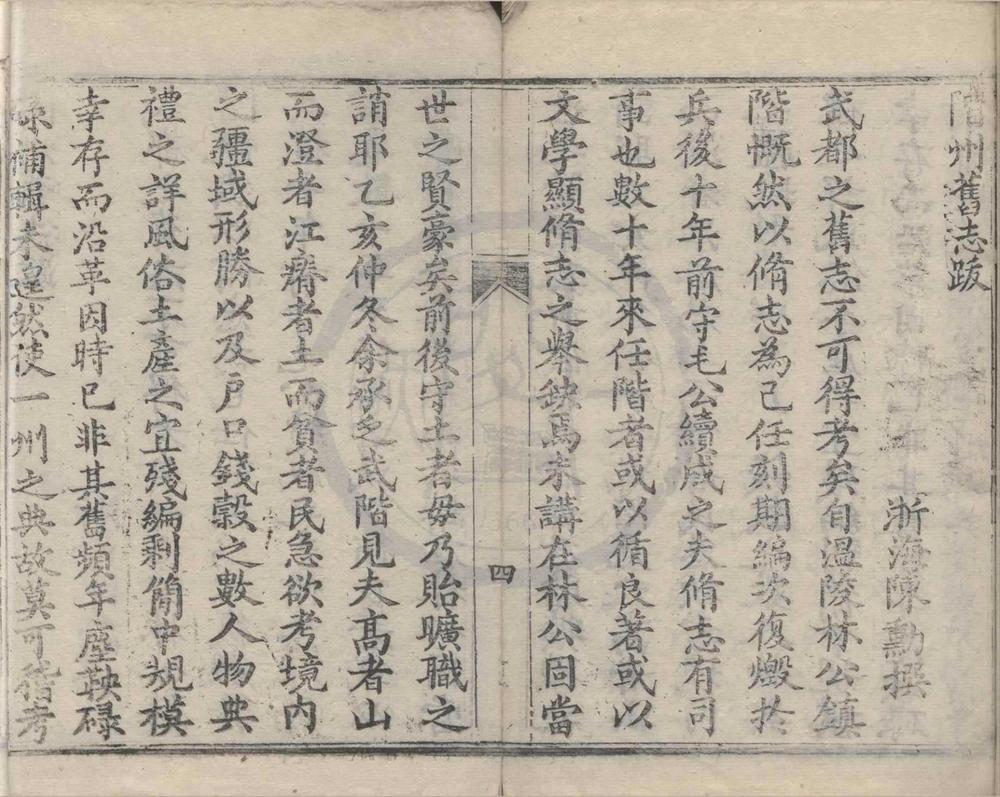 階州舊志跋
浙海陳勳撰
武都之舊志不可得考矣自溫陵林公鎮
階慨然以脩志為己任刻期編次復燬於
兵後十年前守毛公續成之夫脩志有司
事也數十年來任階者或以循良著或以
文學顯脩志之舉缺焉未講在林公固當
四
世之賢豪矣前後守土者毋乃貽曠職之
誚耶乙亥仲冬余承乏武階見夫髙者山
而澄者江瘠者土而貧者民急欲考境内
之疆域形勝以及戶口錢穀之數人物典
禮之詳風俗土產之宜殘編剩簡中規模
幸存而沿革因時已非其舊頻年塵鞅碌
碌補輯未遑然使一州之典故莫可稽考